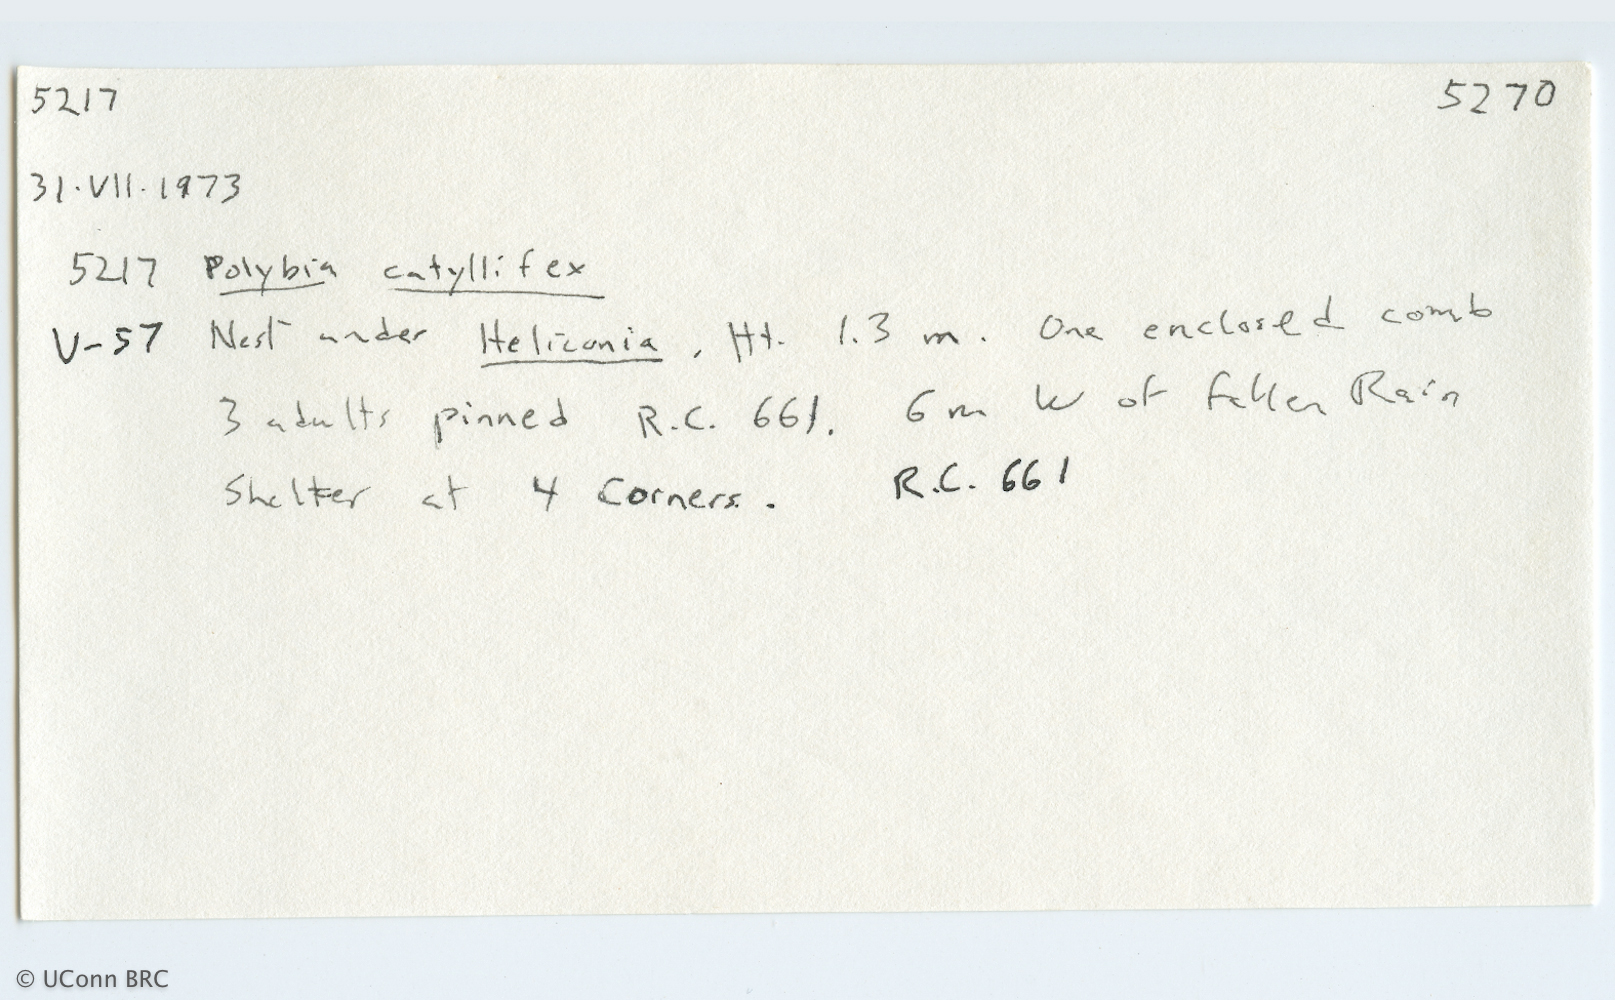 5217 5270
31·VII·1973
5217 Polybia catyllifex
V-57 Nest under Heliconia, Ht. 1.3 m. One enclosed comb
3 adults pinned R.C. 661. 6 m W of fallen Rain
Shelter at 4 Corners. R.C. 661
© UConn BRC